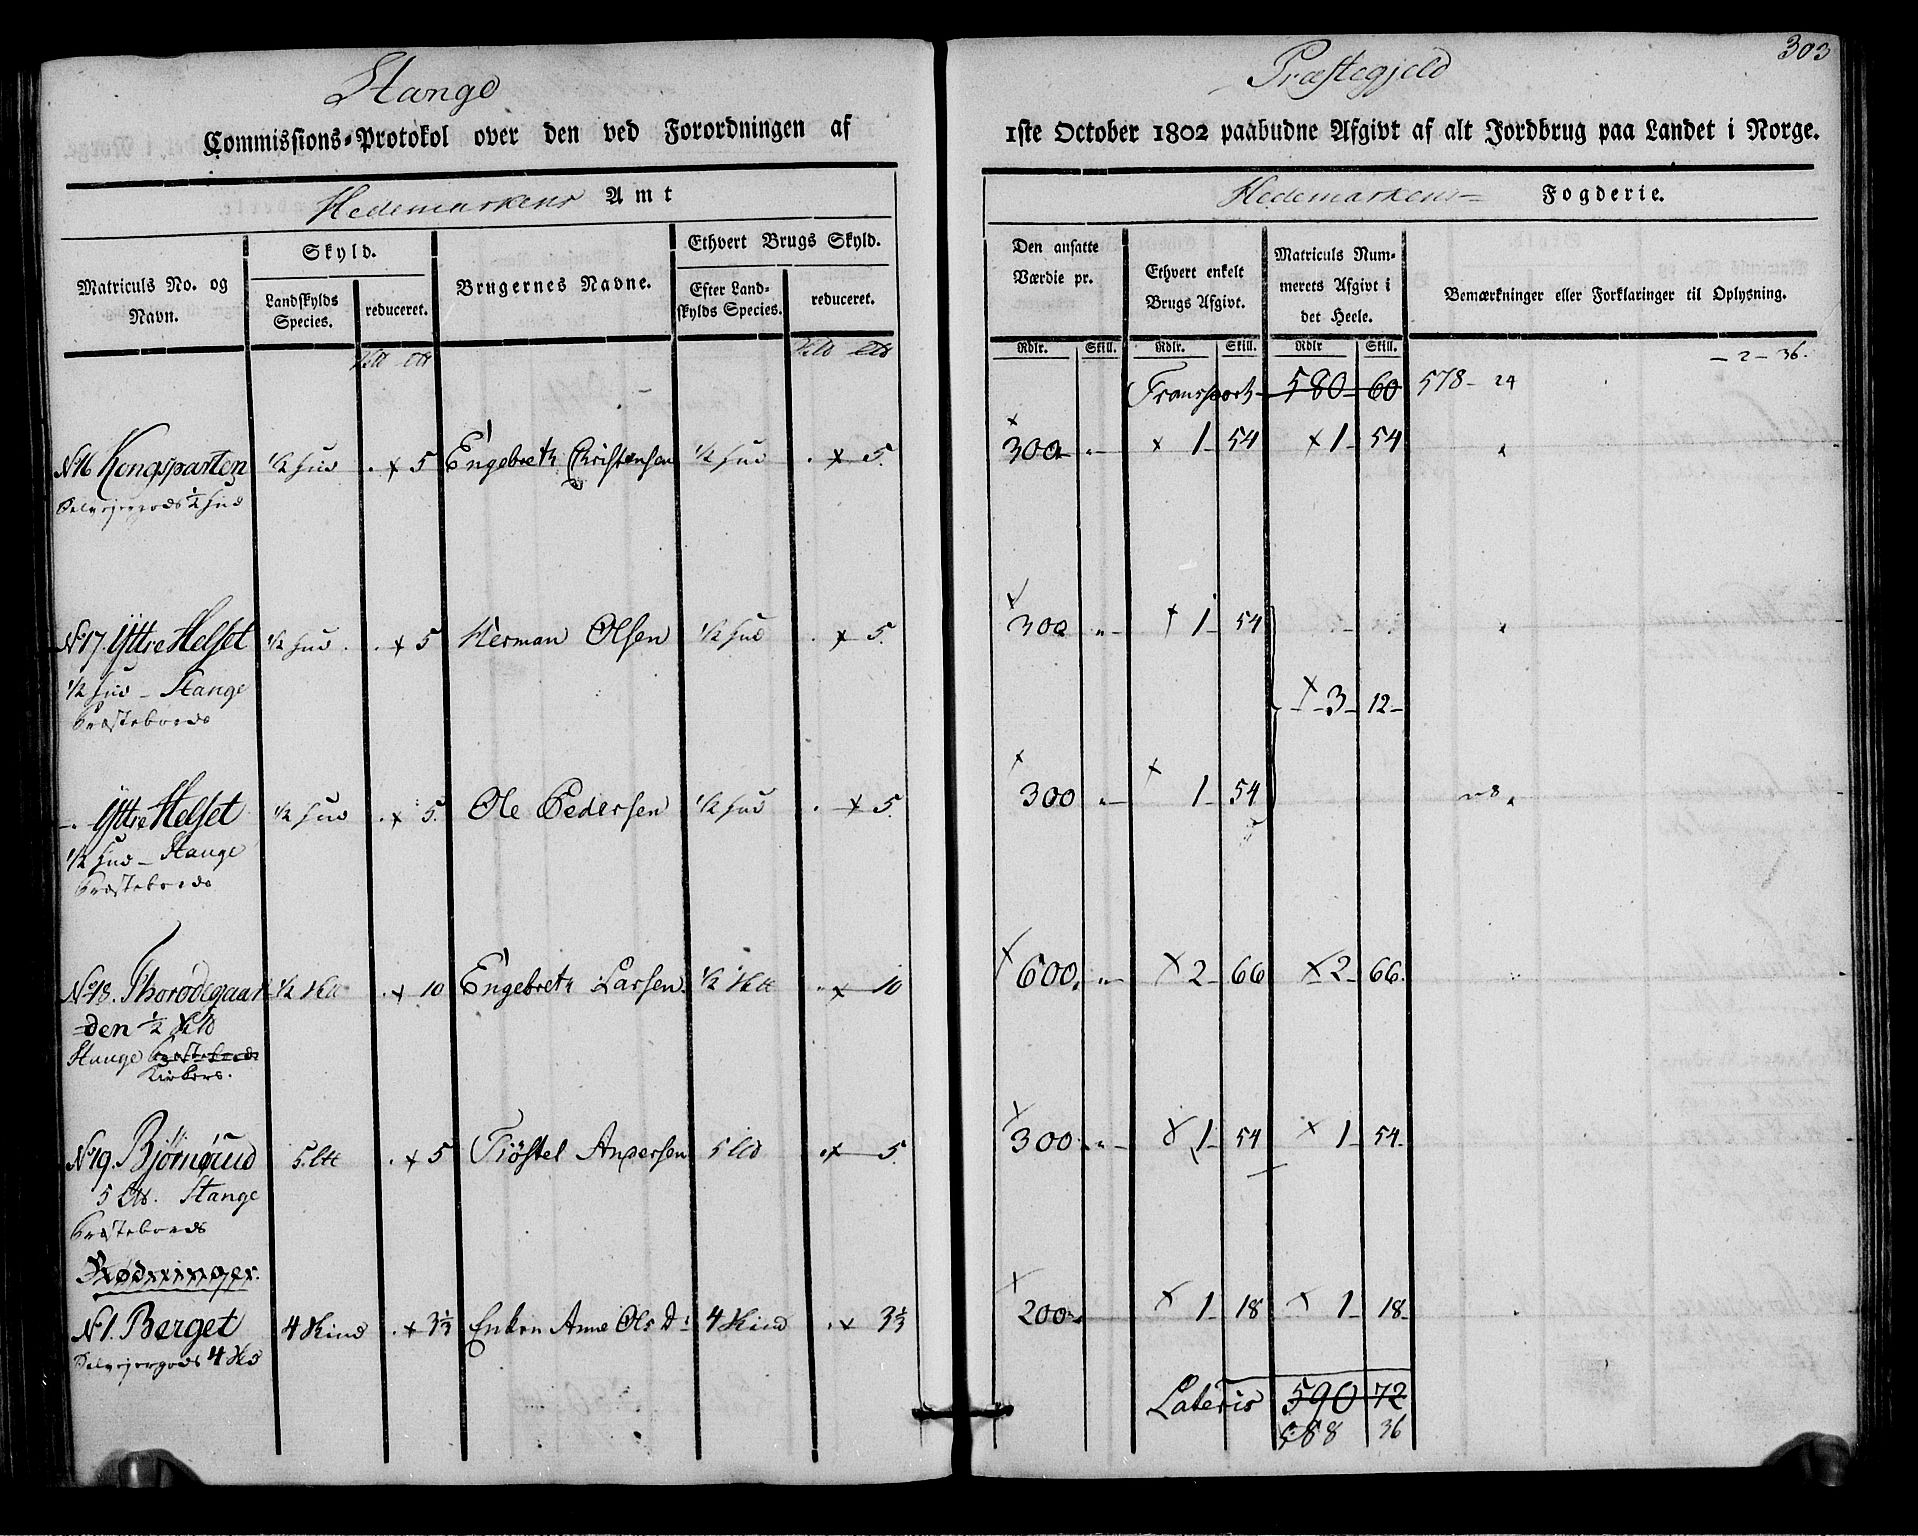 303
Stange Præstegjeld
Commissions-Protokol over den ved Forordningen af 1ste October 1802 paabudne Afgivt af alt Jordbrug paa Landet i Norge.
Hedemarkens Amt Hedemarkens Fogderie.
Matriculs No. og Navn. Skyld. Landskylds Species. reduceret. Brugernes Navne. Ethvert Brugs Skyld. Efter Landskylds Species. reduceret. Den ansatte Værdie pr. Ethvert enkelt Brugs Afgivt. Matriculs Nummerets Afgivt i det Heele. Bemærkninger eller Forklaringer til Oplysning.
Rdlr. Skill. Rdlr. Skill. Rdlr Skill. – 2 – 36.
Transport 580 60 578 – 24
No 16 Kongsparten 1/2 Hud × 5 Engebreth Christensen 1/2 Hud × 5. 300 „ × 1 54 × 1 54
Selvejergods 1/2 Hud
No 17. Yttre Helset 1/2 Hud × 5 Herman Olsen 1/2 Hud × 5. 300 „ × 1 54
1/2 Hud – Stange
Præstebords
× 3 12
– Yttre Helset 1/2 Hud × 5. Ole Pedersen 1/2 Hud × 5. 300 „ × 1 54
1/2 Hud – Stange
Præstebords
No 18. Thorødegaar 1/2 × 10 Engebreth Larsen 1/2 × 10 600 „ × 2 66 × 2 66.
den 1/2
Stange Præstebords
Kirkens.
No 19. Bjørnerud 5 × 5 Tiøstel Andersen 5 × 5. 300 „ × 1 54 × 1 54
5 Stange
Præstebords
Rødninger.
No 1. Berget 4 Skind × 3 1/3 Enken Anne Ols D: 4 Skind × 3 1/3 200 × 1 18 × 1 18
Selvejergods 4
Lateris 590 72
588 36